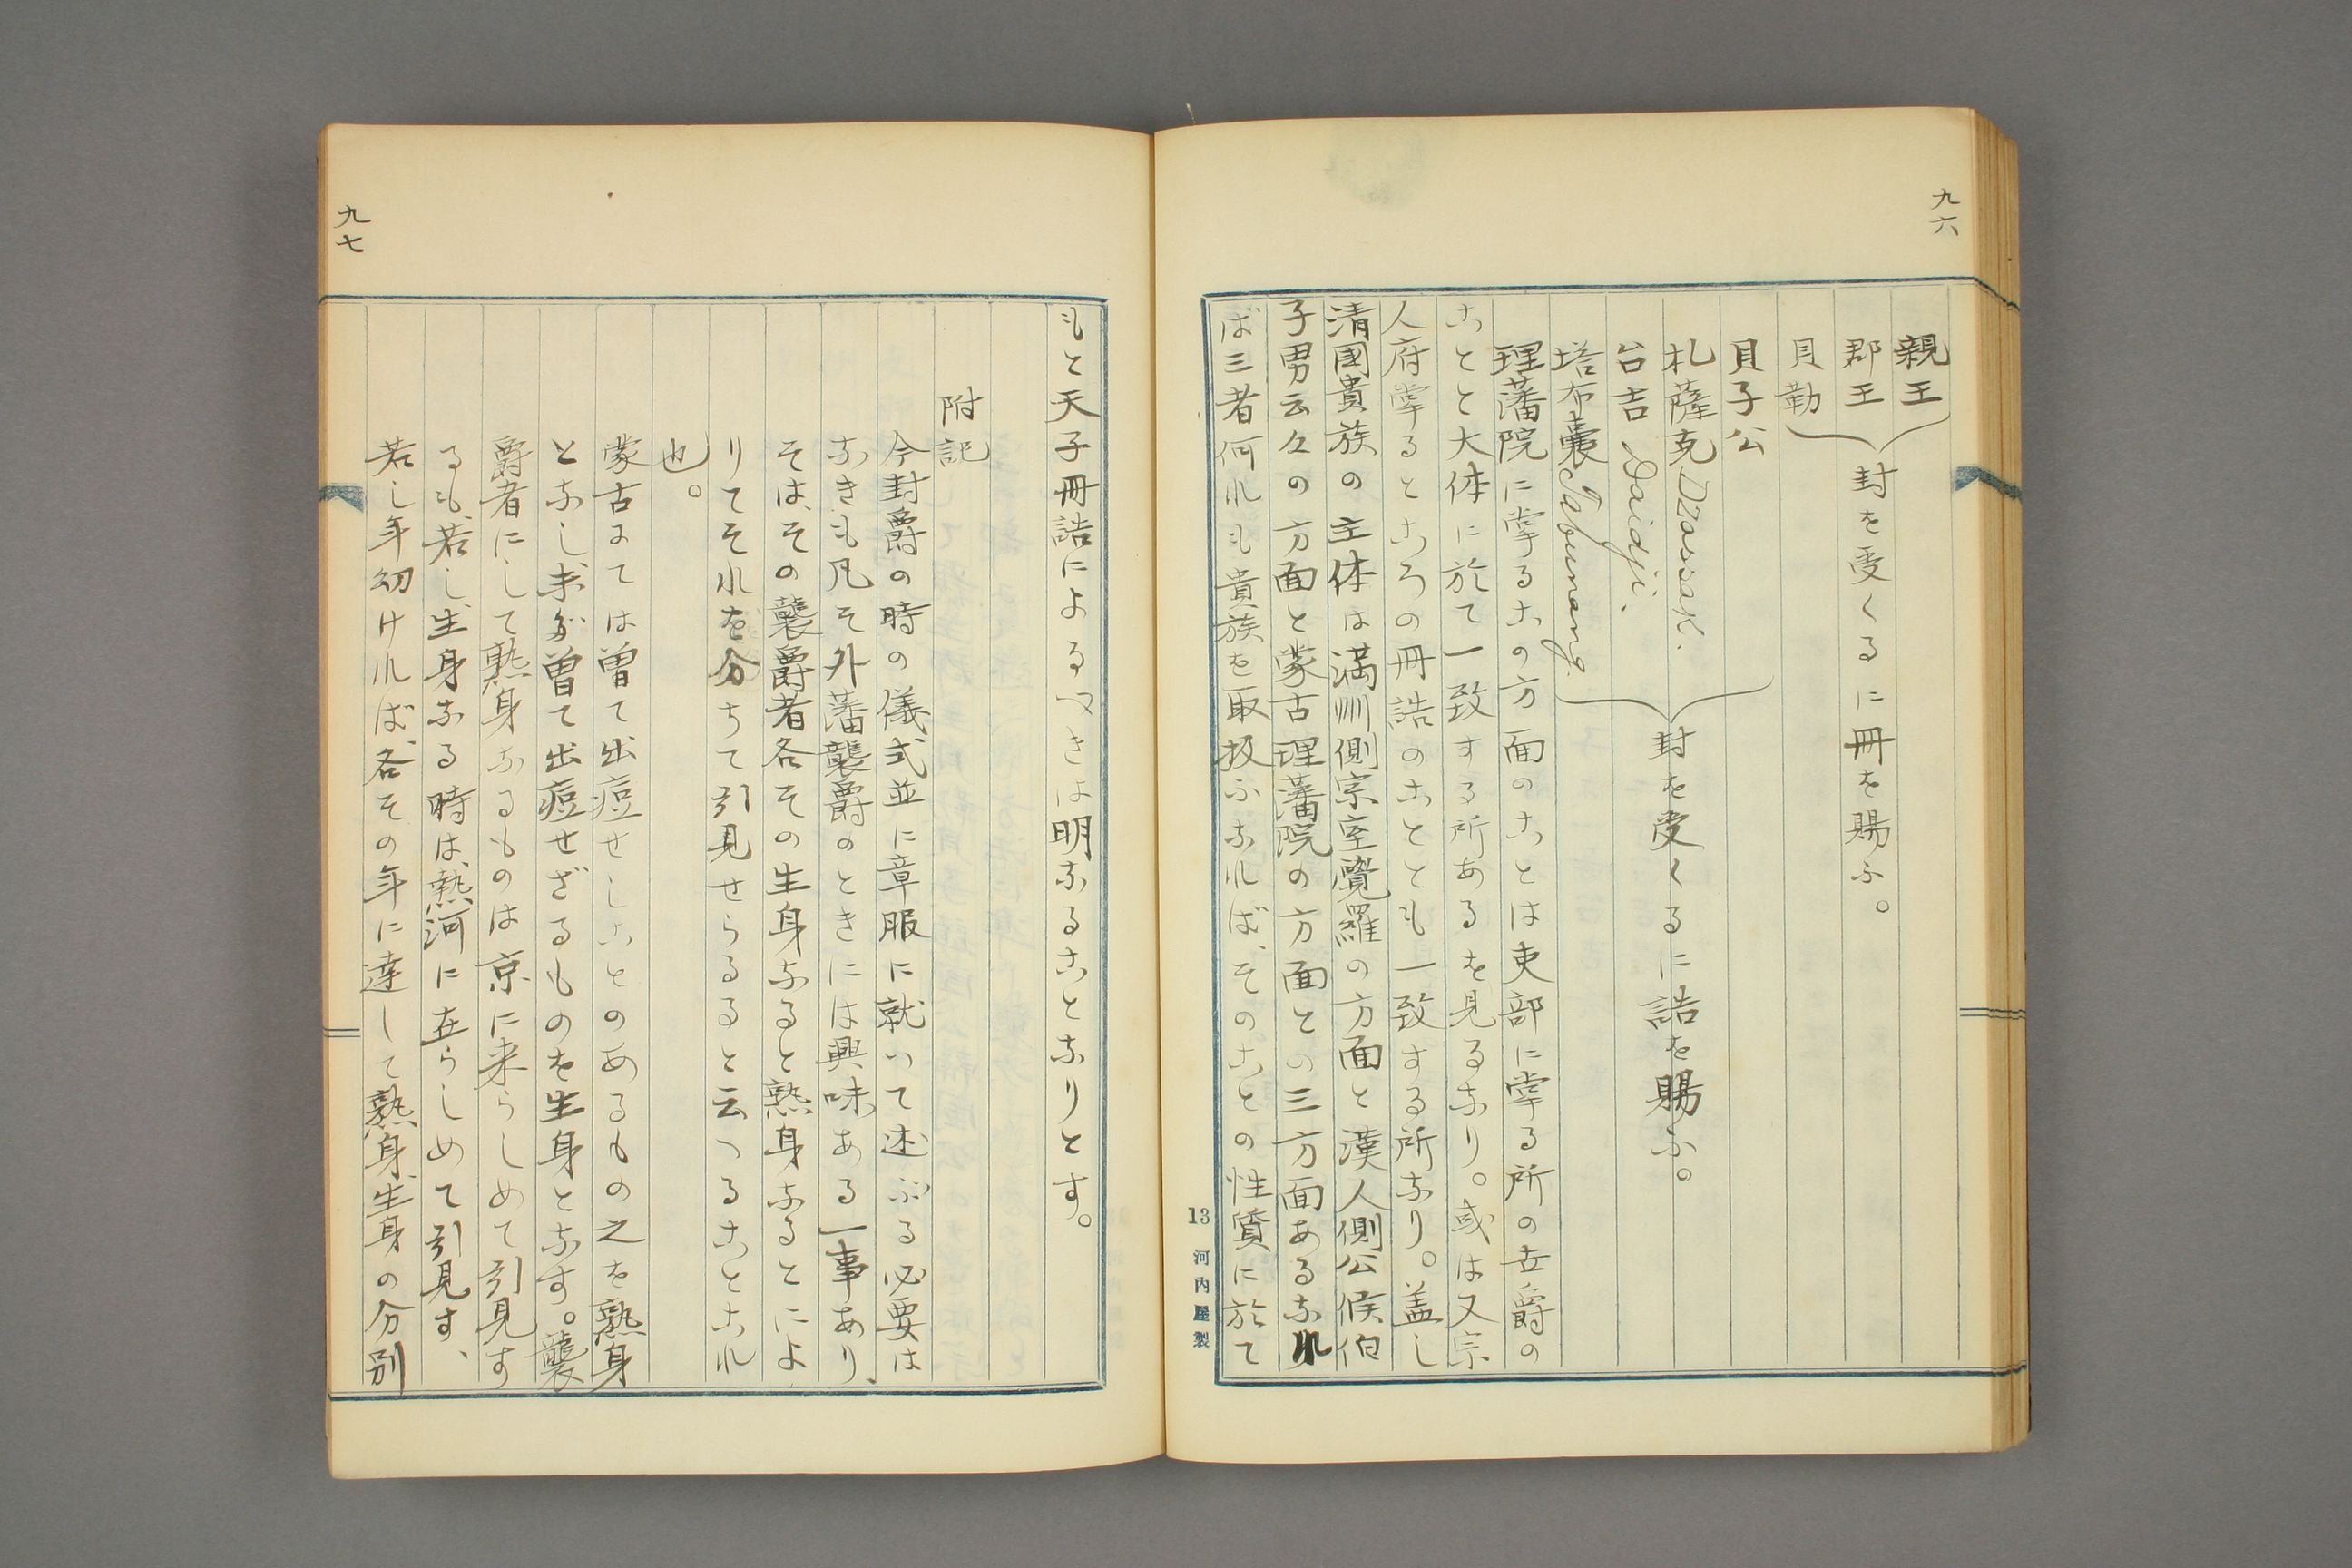 九六
親王
郡王
貝勒
封を受くるに冊を賜ふ。
貝子公
札薩克 Dzassak.
台吉 Daidji.
塔布囊 Tabunang.
封を受くるに誥を賜ふ。
理藩院に掌るこの方面のことは吏部に掌る所の世爵の
ことと大体に於て一致する所あるを見るなり。或は又宗
人府掌るところの冊誥のことも一致する所なり。盖し
清國貴族の主体は満洲側宗室覺羅の方面と漢人側公候伯
子男云々の方面と蒙古理藩院の方面との三方面あるなれ
ば三者何れも貴族を取扱ふなれば、そのことの性質に於て
13 河内屋製
九七
もと天子冊誥によるべきは明なることなりとす。
附記
今封爵の時の儀式並に章服に就いて述ぶる必要は
なきも凡そ外藩襲爵のときには興味ある一事あり、
そは、その襲爵者各その生身なると熟身なるとによ
りてそれを分ちて引見せらるると云へることこれ
也。
蒙古にては曽て出痘せしことのあるもの之を熟身
となし未だ曽て出痘せざるものを生身となす。襲
爵者にして熟身なるものは京に来らしめて引見す
るも、若し生身なる時は、熱河に在らしめて引見す、
若し年幼ければ、各その年に達して熟身、生身の分別